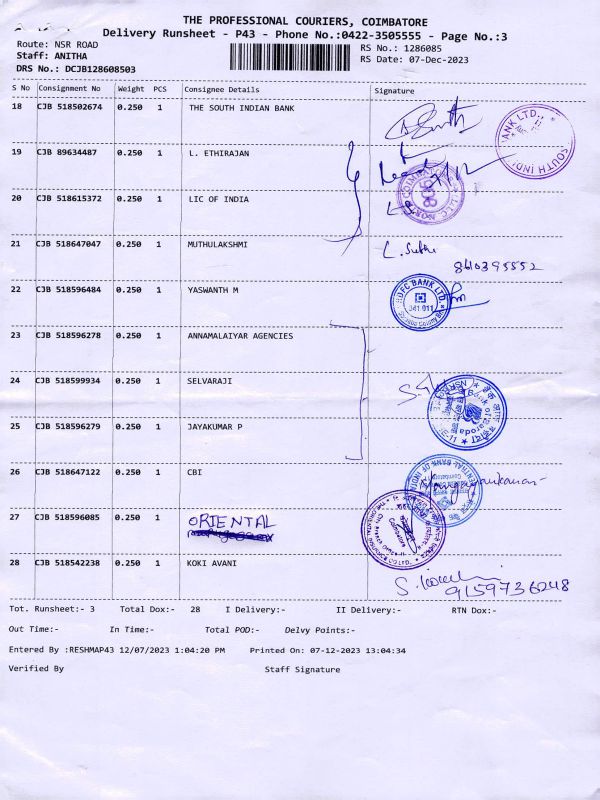 THE PROFESSIONAL COURIERS, COIMBATORE
Delivery Runsheet - P43 - Phone No.:0422-3505555 - Page No.:3
Route: NSR ROAD RS No.: 1286085
Staff: ANITHA RS Date: 07-Dec-2023
DRS No.: DCJB128608503
S No Consignment No Weight PCS Consignee Details Signature
18 CJB 518502674 0.250 1 THE SOUTH INDIAN BANK
19 CJB 89634487 0.250 1 L. ETHIRAJAN
20 CJB 518615372 0.250 1 LIC OF INDIA
21 CJB 518647047 0.250 1 MUTHULAKSHMI
8610395552
22 CJB 518596484 0.250 1 YASWANTH M
HDFC BANK LTD.
23 CJB 518596278 0.250 1 ANNAMALAIYAR AGENCIES
24 CJB 518599934 0.250 1 SELVARAJI
Bank of Baroda
25 CJB 518596279 0.250 1 JAYAKUMAR P
26 CJB 518647122 0.250 1 CBI
CENTRAL BANK OF INDIA
27 CJB 518596085 0.250 1 ORIENTAL
28 CJB 518542238 0.250 1 KOKI AVANI
9159736248
Tot. Runsheet:- 3 Total Dox:- 28 I Delivery:- II Delivery:- RTN Dox:-
Out Time:- In Time:- Total POD:- Delvy Points:-
Entered By :RESHMAP43 12/07/2023 1:04:20 PM Printed On: 07-12-2023 13:04:34
Verified By Staff Signature